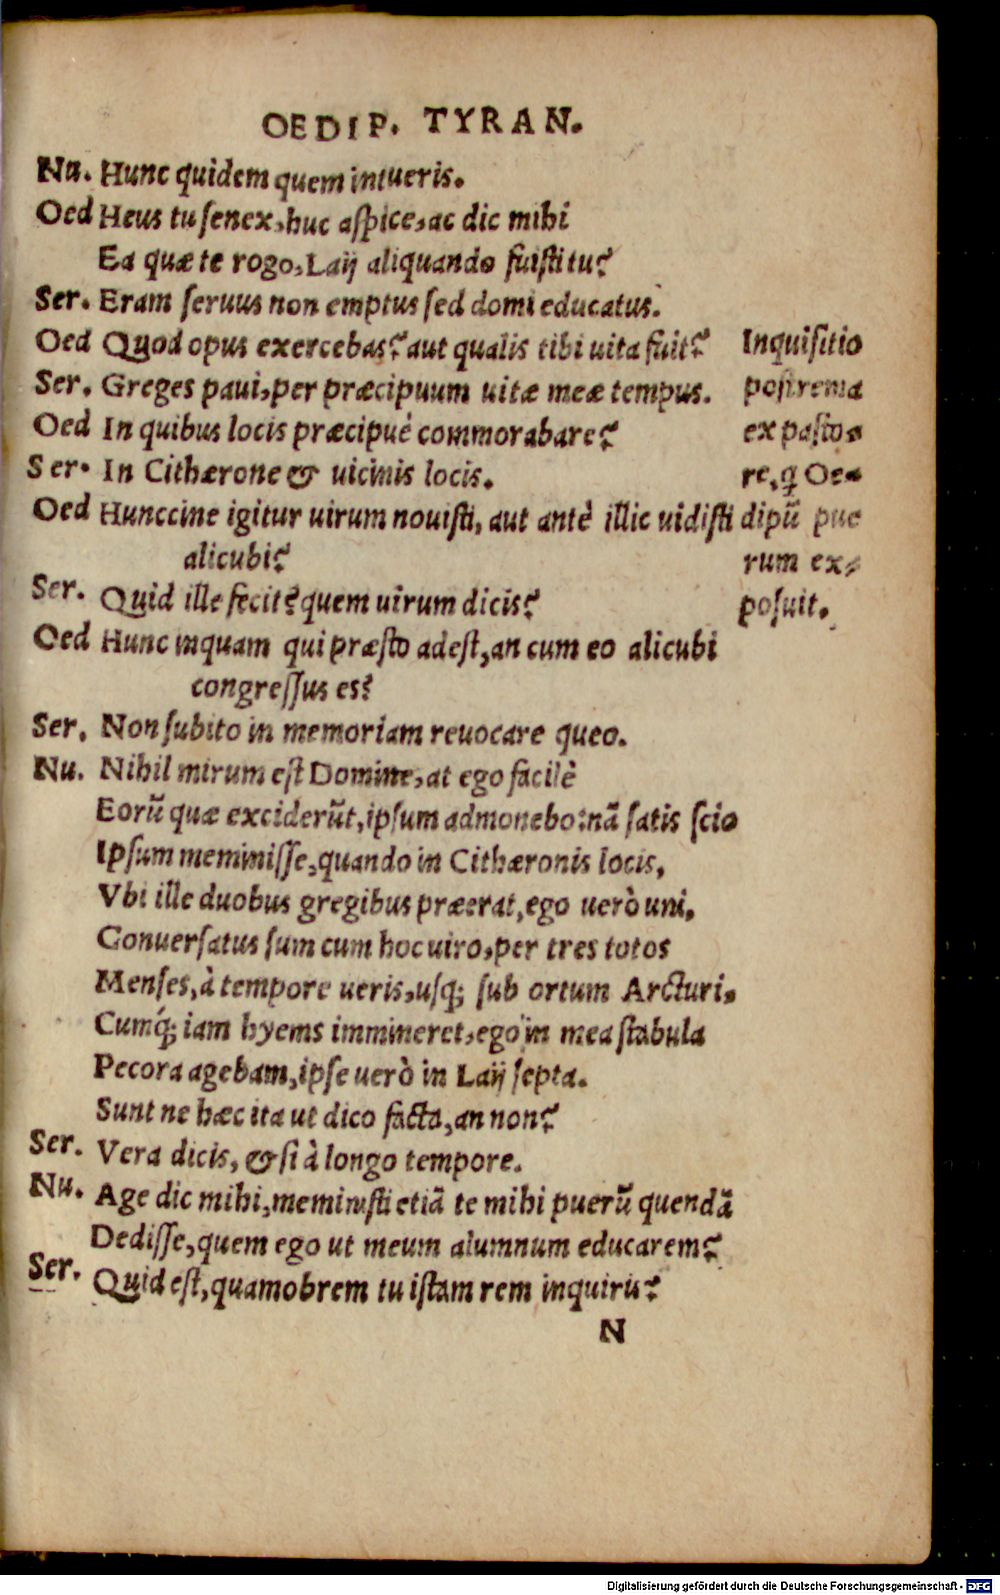 OEDIP. TYRAN.
Nu. Hunc quidem quem intueris.
Oed Heus tu ſenex, huc aſpice, ac dic mihi
Ea quæ te rogo, Laij aliquando fuiſti tu?
Ser. Eram ſeruus non emptus ſed domi educatus.
Oed Quod opus exercebas? aut qualis tibi uita fuit?
Ser. Greges paui, per præcipuum uitæ meæ tempus.
Oed In quibus locis præcipuè commorabare?
Ser. In Cithærone & uicinis locis.
Oed Hunccine igitur uirum nouiſti, aut antè illic uidiſti
alicubi?
Ser. Quid ille fecit? quem uirum dicis?
Oed Hunc inquam qui præſto adeſt, an cum eo alicubi
congreſſus es?
Ser. Non ſubito in memoriam reuocare queo.
Nu. Nihil mirum eſt Domine, at ego facilè
Eorũ quæ exciderũt, ipſum admonebo: nã ſatis ſcio
Ipſum meminiſſe, quando in Cithæronis locis,
Vbi ille duobus gregibus præerat, ego uerò uni,
Conuerſatus ſum cum hoc uiro, per tres totos
Menſes, à tempore ueris, uſq; ſub ortum Arcturi.
Cumq́; iam hyems immineret, ego in mea ſtabula
Pecora agebam, ipſe uerò in Laij ſepta.
Sunt ne hæc ita ut dico facta, an non?
Ser. Vera dicis, & ſi à longo tempore.
Nu. Age dic mihi, meminiſti etiã te mihi puerũ quendã
Dediſſe, quem ego ut meum alumnum educarem?
Ser. Quid eſt, quamobrem tu iſtam rem inquiris?
N
Inquiſitio
poſtrema
ex paſto-
re, q̨ Oe-
dipũ pue
rum ex-
poſuit.
Digitalisierung gefördert durch die Deutsche Forschungsgemeinschaft - DFG